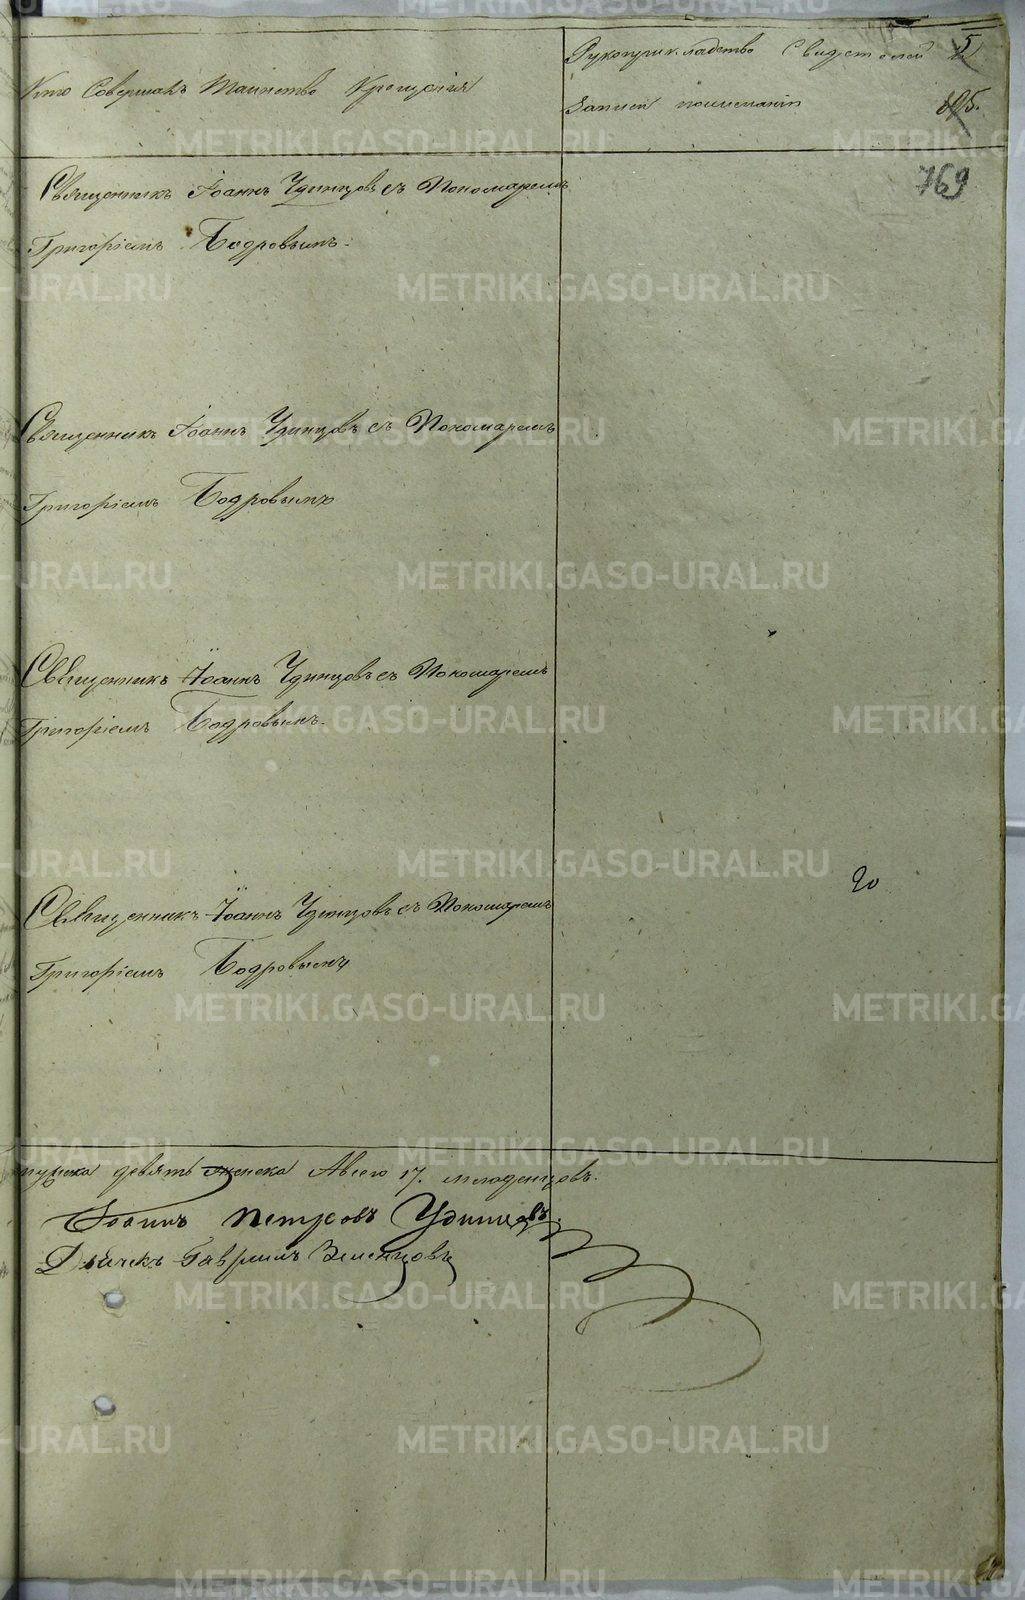 Кто Совершалъ Таинство Крещенія
Рукоприкладство Свидетелей
Записи по желанію
5
195.
769
Священникъ Іоаннъ Удинцовъ съ Пономаремъ
Григоріемъ Бодровымъ.
Священникъ Іоаннъ Удинцовъ съ Пономаремъ
Григоріемъ Бодровымъ
Священникъ Іоаннъ Удинцовъ съ Пономаремъ
Григоріемъ Бодровымъ.
Священникъ Іоаннъ Удинцовъ съ Пономаремъ
Григоріемъ Бодровымъ
20
девять женска Авсего 17. младенцовъ.
Іоаннъ Петровъ Удинцовъ
Дьячекъ Гавриилъ Земенцовъ
METRIKI.GASO-URAL.RU